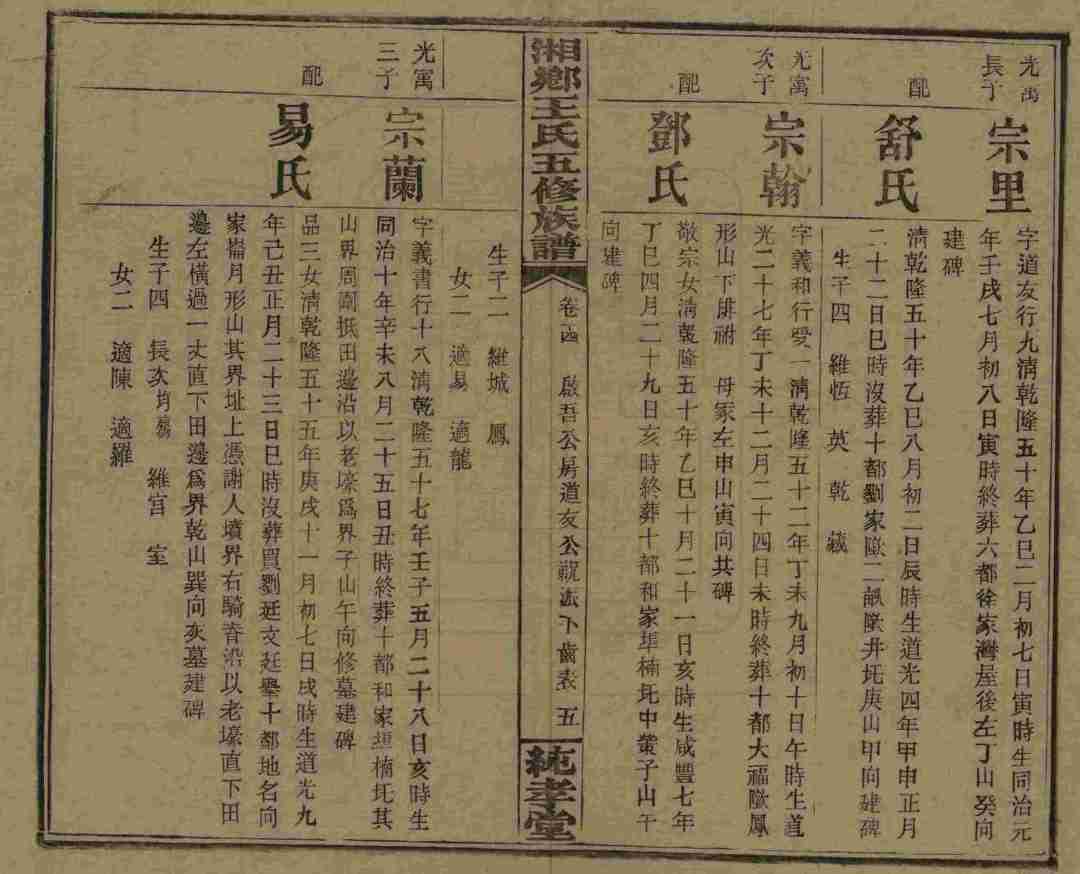 光寓
長子
宗里
字道友行九清乾隆五十年乙巳二月初七日寅時生同治元
年壬戌七月初八日寅時終葬六都徐家灣屋後左丁山癸向
建碑
配
舒氏
清乾隆五十年乙巳八月初二日辰時生道光四年甲申正月
二十二日巳時沒葬十都劉家歐二瓻歐井坵庚山甲向建碑
生子四 維恆 英 乾 藏
光寓
次子
宗翰
字義和行受一清乾隆五十二年丁未九月初十日午時生道
光二十七年丁未十二月二十四日未時終葬十都大福歐鳳
形山下腓祔 母冢左申山寅向共碑
配
鄧氏
敬宗女清乾隆五十年乙巳十月二十一日亥時生咸豐七年
丁巳四月二十九日亥時終葬十都和家埠楠坵中塋子山午
向建碑
湘鄉王氏五修族譜
卷 啟吾公房道友公祝法下齒表 五
純孝堂
生子二 維城 鳳
女二 適易 適龍
光寓
三子
宗蘭
字義書行十八清乾隆五十七年壬子五月二十八日亥時生
同治十年辛未八月二十五日丑時終葬十都和家垣楠坵其
山界周圍抵田邊沿以老壕為界子山午向修墓建碑
配
易氏
品三女清乾隆五十五年庚戌十一月初七日戌時生道光九
年己丑正月二十三日巳時沒葬買劉廷文廷舉十都地名向
家崙月形山其界址上憑謝人墳界右騎脊沿以老壕直下田
邊左橫過一丈直下田邊為界乾山巽向灰墓建碑
生子四 長次均殤 維宮 室
女二 適陳 適羅